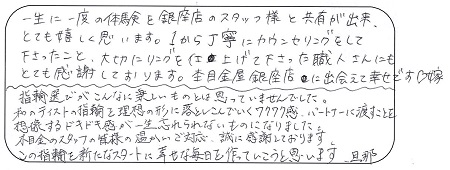 一生に一度の体験を銀座店のスタッフ様と共有が出来、
とても嬉しく思います。1から丁寧にカウンセリングをして
下さったこと、大切にリングを仕上げて下さった職人さんにも
とても感謝しております。杢目金屋銀座店に出会えて幸せです♡嫁
指輪選びがこんなに楽しいものとは思っていませんでした。
和のテイストの指輪を理想の形に落としこんでいくワクワク感、パートナーに渡すことを
想像するドキドキ感が一生忘れられないものになりました。
本日迄のスタッフの皆様の温かいご対応、誠に感謝しております。
この指輪を新たなスタートに幸せな毎日を作っていこうと思います 旦那